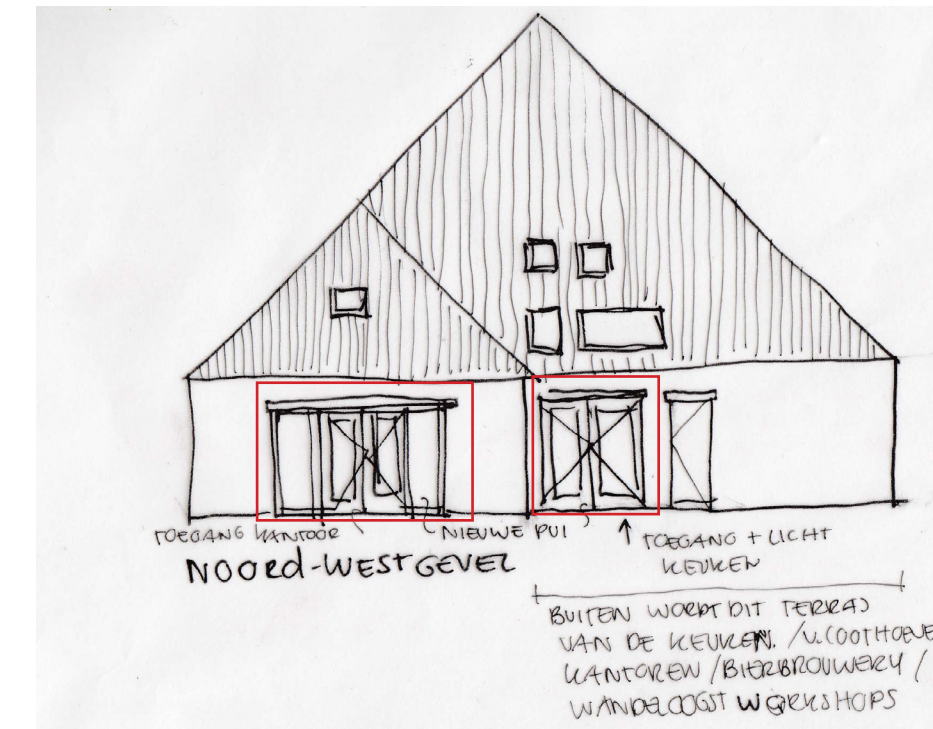 TOEGANG KANTOOR
NIEUWE PUI
TOEGANG + LICHT
KEUKEN
NOORD-WESTGEVEL
BUITEN WORDT DIT TERRAS
VAN DE KEUKEN. /
KANTOREN / BIERBROUWERY /
WANDELOOGST WORKSHOPS